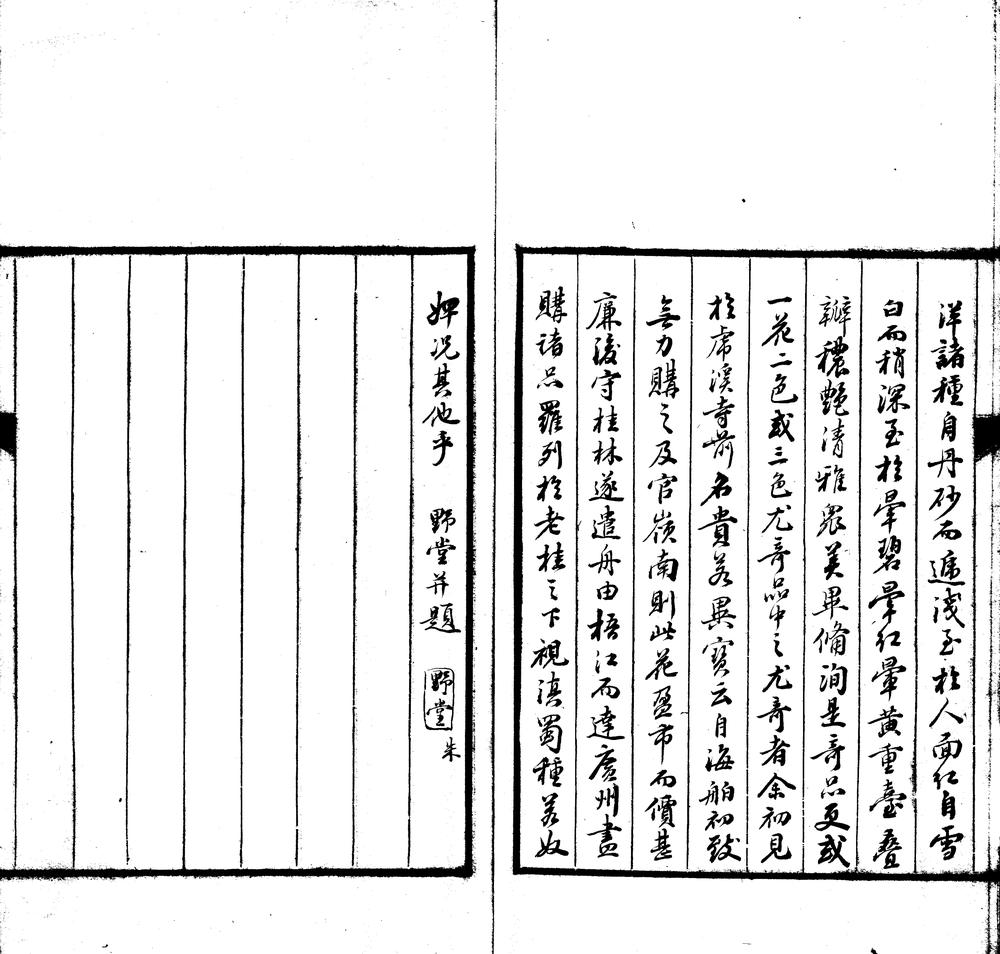 洋諸種自丹砂而遞淺至於人面紅自雪
白而稍深至於暈碧暈紅暈黃重臺疊
瓣穠艷清雅眾美畢備洵是奇品更或
一花二色或三色尤奇品中之尤奇者余初見
於虎溪寺前名貴若異寶云自海舶初致
無力購之及官嶺南則此花盈市而價甚
廉後守桂林遂遣舟由梧江而達廣州盡
購諸品羅列於老桂之下視滇蜀種若奴
婢况其他乎　野堂并題　野堂　朱